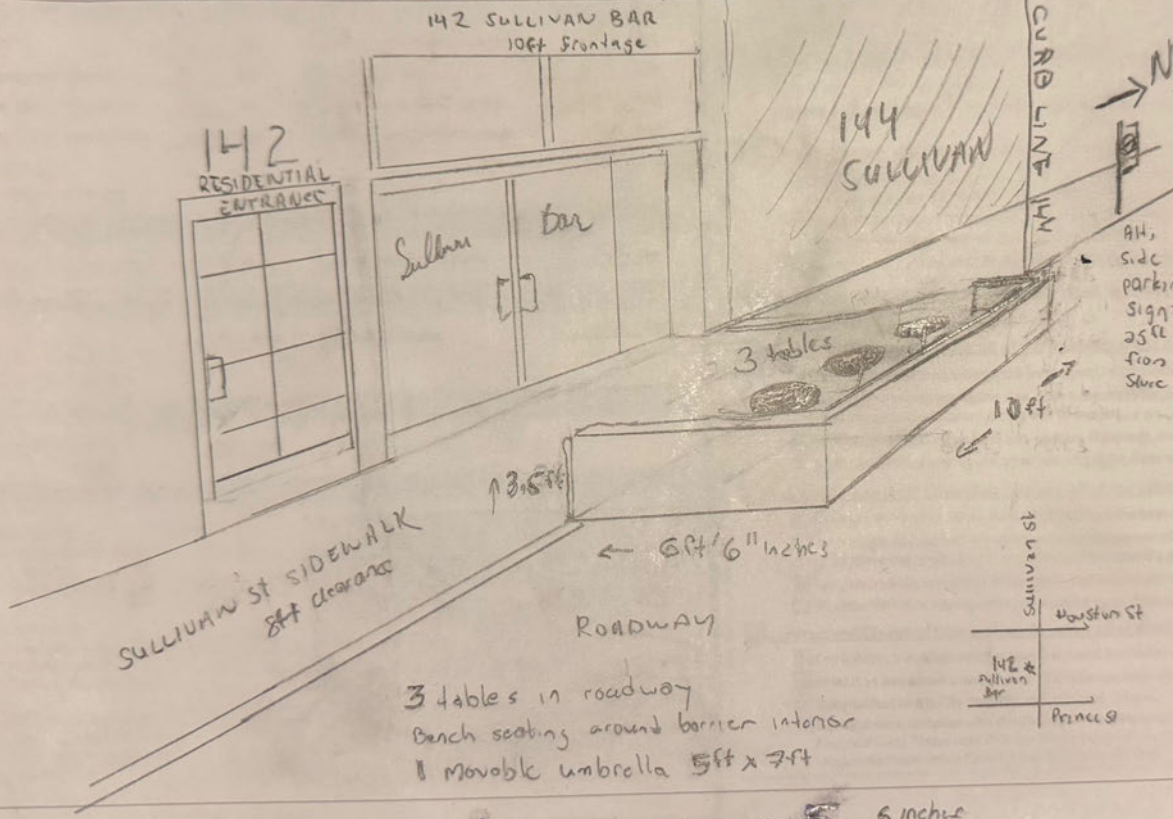 142 SULLIVAN BAR
10ft frontage
142
RESIDENTIAL
ENTRANCE
Bar
144
SULLIVAN
CURB LINE
N
Alt,
side
parkin
sign
25ft
from
3 tables
↑3.5ft
10ft
← 6ft'6" inches
SULLIVAN St SIDEWALK
8ft clearance
ROADWAY
3 tables in roadway
Bench seating around barrier interior
1 movable umbrella 5ft x 7ft
Houston St
142 *
Sullivan
Bar
6 inches